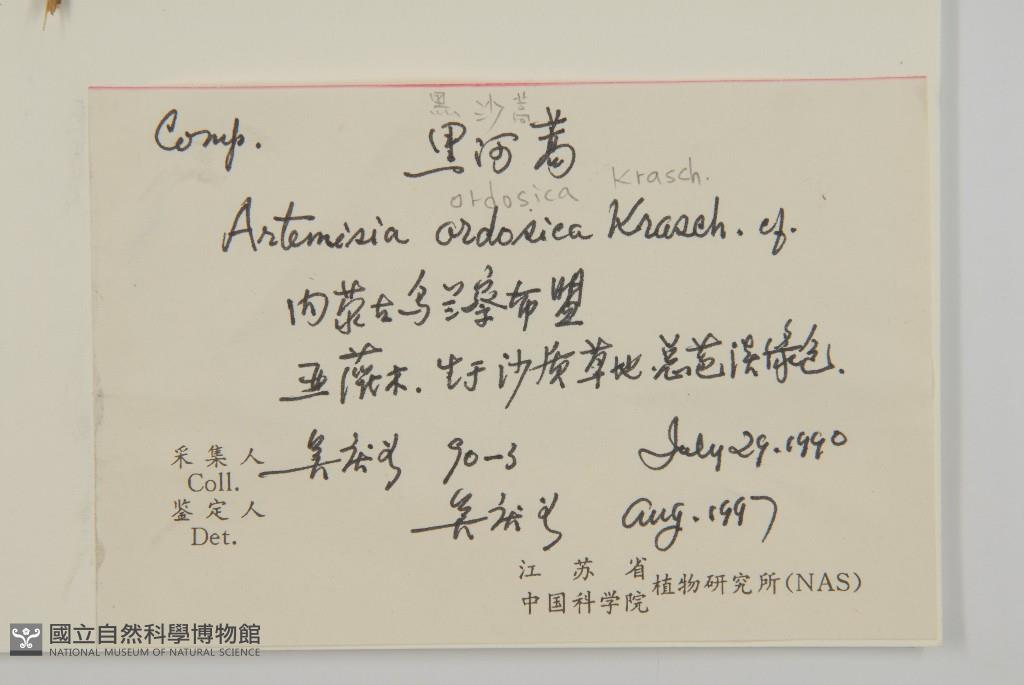 黑沙蒿
Comp. 黑河蒿
ordosica Krasch.
Artemisia ordosica Krasch. cf.
内蒙古乌兰察布盟
亚灌木. 生于沙质草地. 总苞淡绿色.
采集人 90-3 July 29. 1990
Coll.
鉴定人 Aug. 1997
Det.
江苏省
中国科学院 植物研究所(NAS)
國立自然科學博物館
NATIONAL MUSEUM OF NATURAL SCIENCE